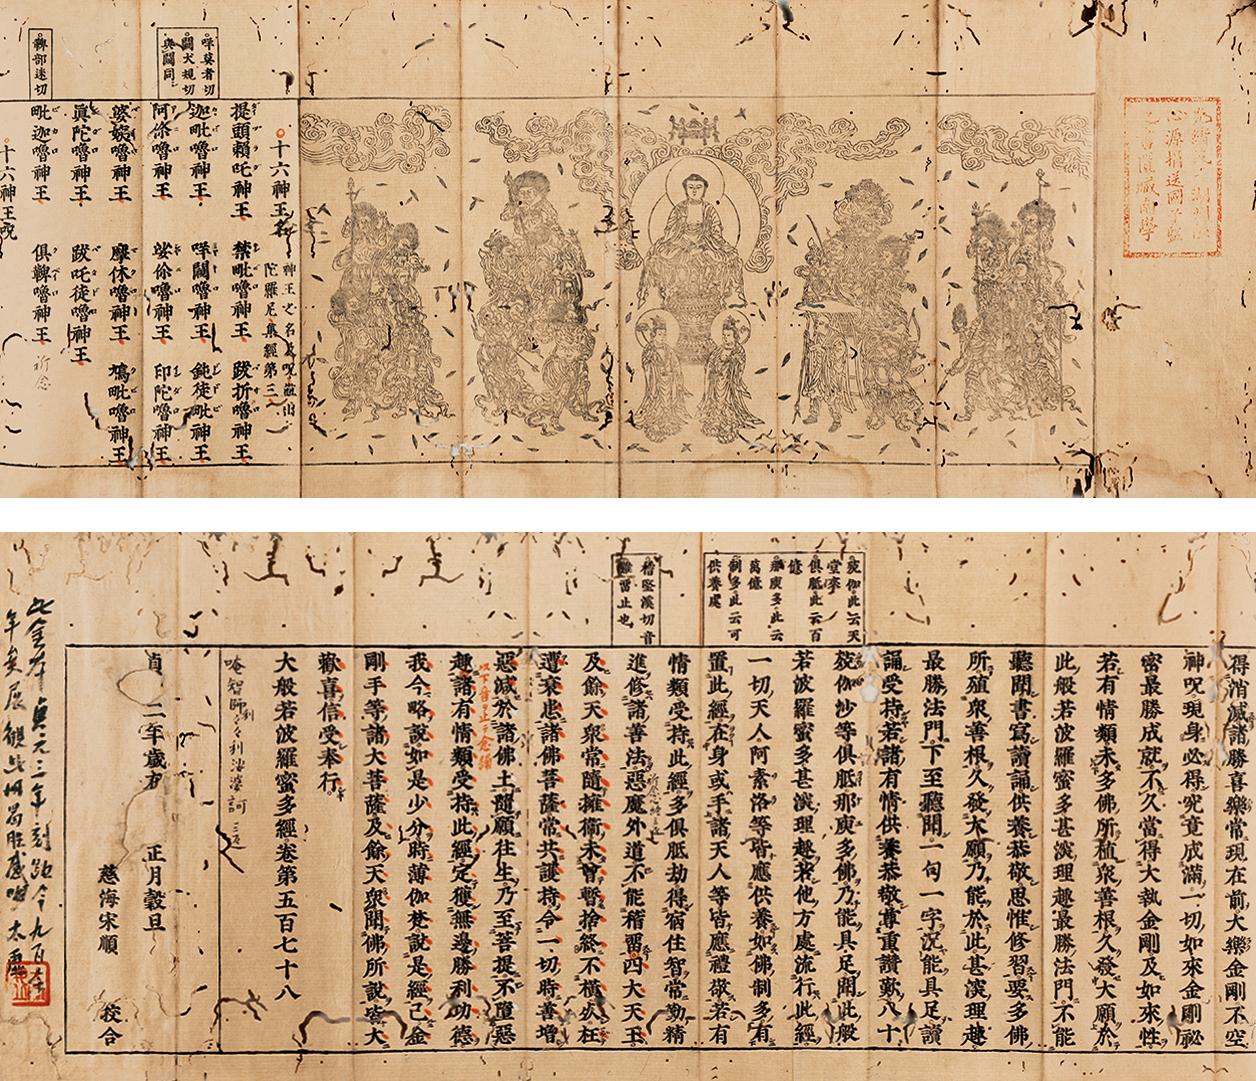 光緒戊子湖州陸
心源捐送國子監
之書匱藏南學
十六神王名
神王之名及呪
陀羅尼集經第三
提頭賴吒神王 禁毗嚕神王 跋折嚕神王
迦毗嚕神王 咩闘嚕神王 鈍徒毗神王
阿儵嚕神王 娑儵嚕神王 印陀嚕神王
婆姨嚕神王 摩休嚕神王 鳩毗嚕神王
真陀嚕神王 跋吒徒嚕神王
毗迦嚕神王 俱鞞嚕神王 祈念
十六神王呪
咩莫者切
闘犬規切
與闚同
鞞部迷切
得消滅諸勝喜樂常現在前大樂金剛不空
神呪現身必得究竟成滿一切如來金剛祕
密最勝成就不久當得大執金剛及如來性
若有情類未多佛所植衆善根久發大願於
此般若波羅蜜多甚深理趣最勝法門不能
聽聞書寫讀誦供養恭敬思惟修習要多佛
所殖衆善根久發大願乃能於此甚深理趣
最勝法門下至聽聞一句一字況能具足讀
誦受持若諸有情供養恭敬尊重讚歎八十
殑伽沙等俱胝那庾多佛乃能具足聞此般
若波羅蜜多甚深理趣若他方處流行此經
一切天人阿素洛等皆應供養如佛制多有
置此經在身或手諸天人等皆應禮敬若有
情類受持此經多俱胝劫得宿住智常勤精
進修諸善法惡魔外道不能稽留四大天王
及餘天衆常隨擁衛未曾暫捨終不橫死枉
遭衰患諸佛菩薩常共護持令一切時善增
惡滅於諸佛土隨願往生乃至菩提不墮惡
趣諸有情類受持此經定獲無邊勝利功德
我今略說如是少分時薄伽梵說是經已金
剛手等諸大菩薩及餘天衆聞佛所說皆大
歡喜信受奉行
大般若波羅蜜多經卷第五百七十八
殑伽此云天
堂來
俱胝此云百
億
那庾多此云
萬億
制多此云可
供養處
稽堅溪切音
雞留止也
貞 二年歲 正月穀旦
慈海宋順 校合
此金本貞元三年刻